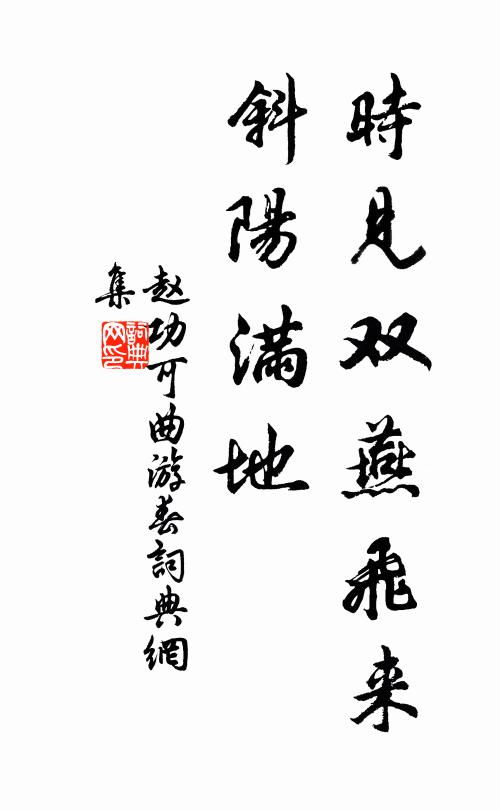 時見双燕飛来
斜陽満地
赵功可曲游春詞典網
集
詞典
网印